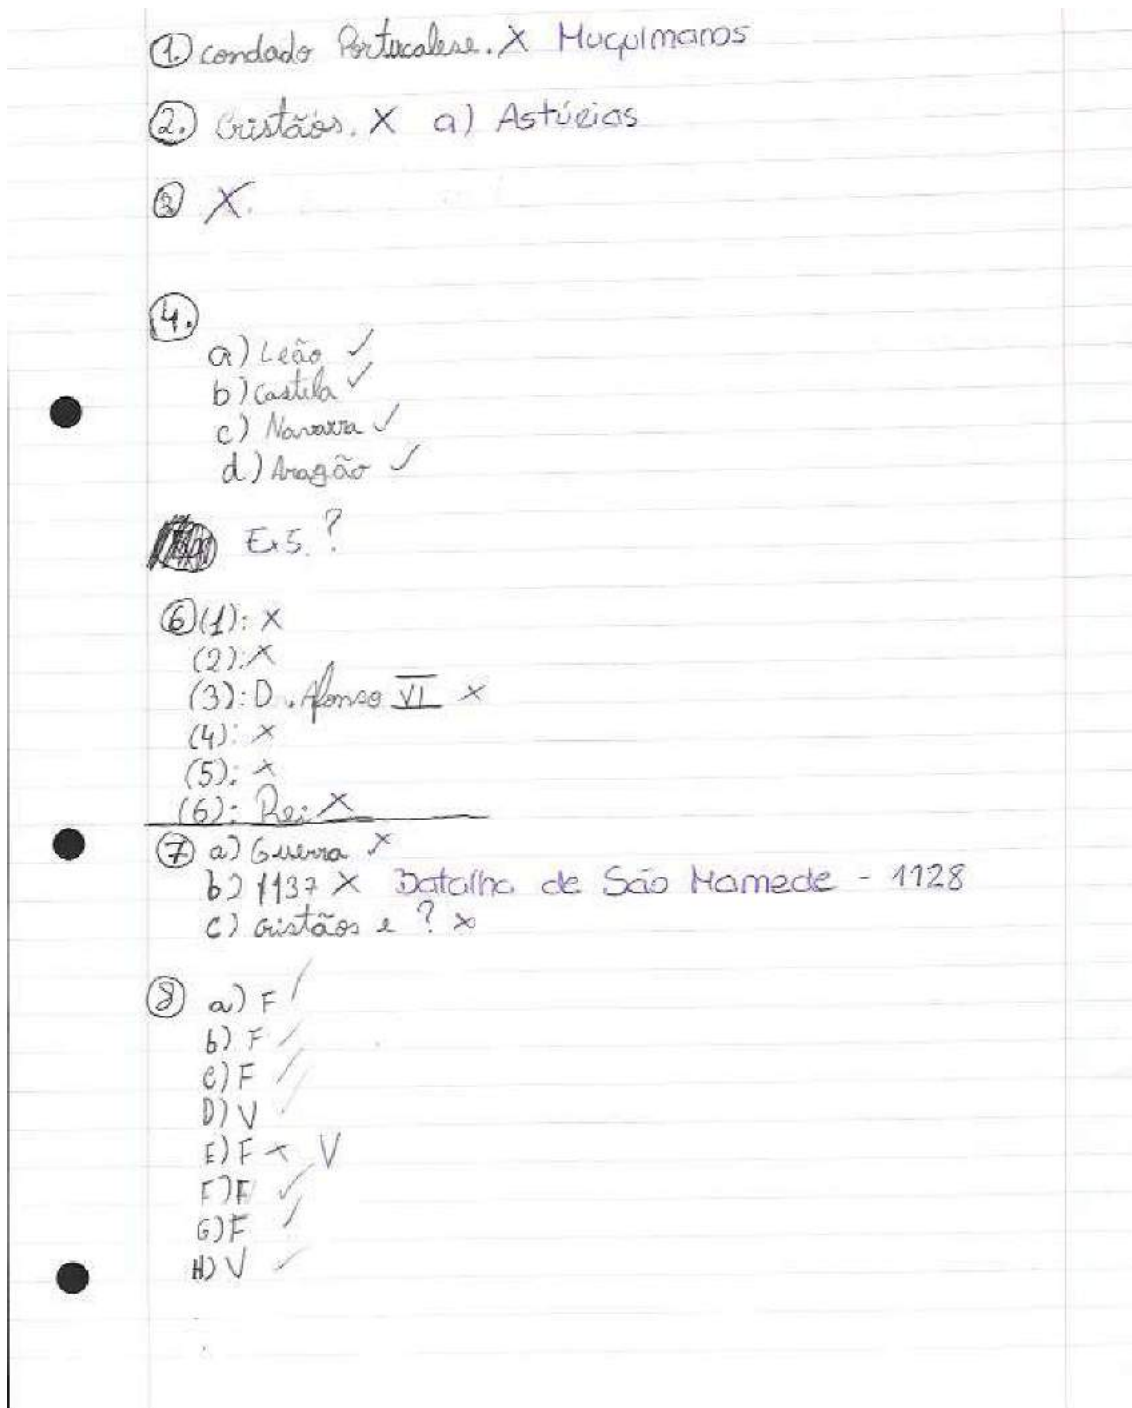 1. condado Portucalese. X Muçulmanos
2. Cristãos. X a) Astúrias
3 X.
4.
a) Leão ✓
b) Castela ✓
c) Navarra ✓
d) Aragão ✓
Ex5. ?
6 (1): X
(2): X
(3): D. Afonso VI X
(4): X
(5): X
(6): Rei X
7 a) Guerra X
b) 1137 X Batalha de São Mamede - 1128
c) cristãos e ? X
8 a) F /
b) F /
c) F /
D) V /
E) F X V
F) F ✓
G) F /
H) V ✓